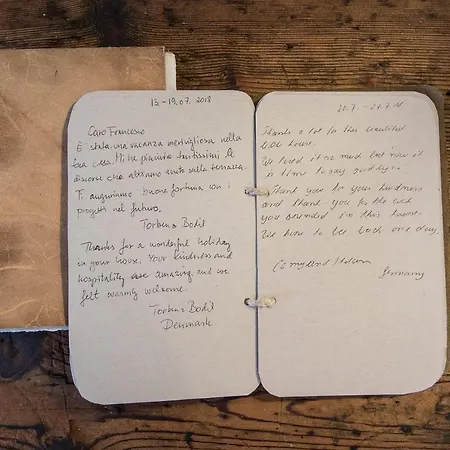 13-19.07. 2018
Caro Francesco
E' stata una vacanza meravigliosa nella
tua casa. Mi ha piaciuto tantissimi le
discorse che abbiamo avuto sulla terrazza.
Ti auguriamo buone fortuna con i
progetti nel futuro.
Torben & Bodil
Thanks for a wonderful holiday
in your house. Your kindness and
hospitality are amazing and we
felt warmly welcome.
Torben & Bodil
Denmark
Thanks a lot for this beautiful
house.
We loved it so much but now it
is time to say goodbye.
Thank you for your kindness
and thank you for the
you in this house.
We hope to be back one day.
and
Germany